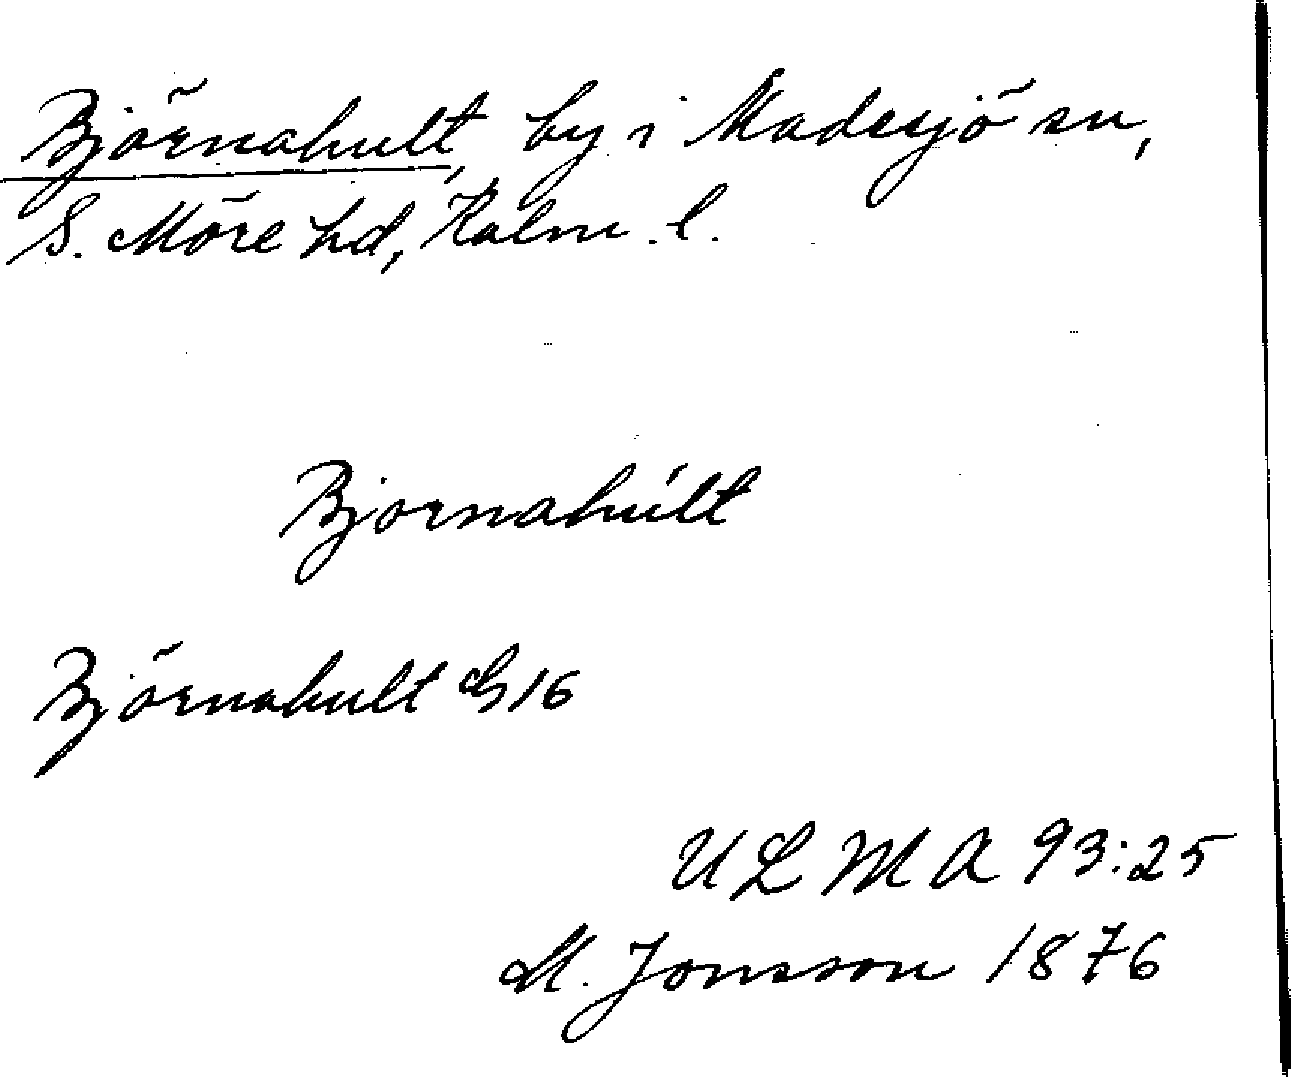 Björnahult, by i Madesjö sn,
S. Möre hd, Kalm. l.
Bjornahúlt
Björnahult G16
ULMA 93:25
M. Jonsson 1876